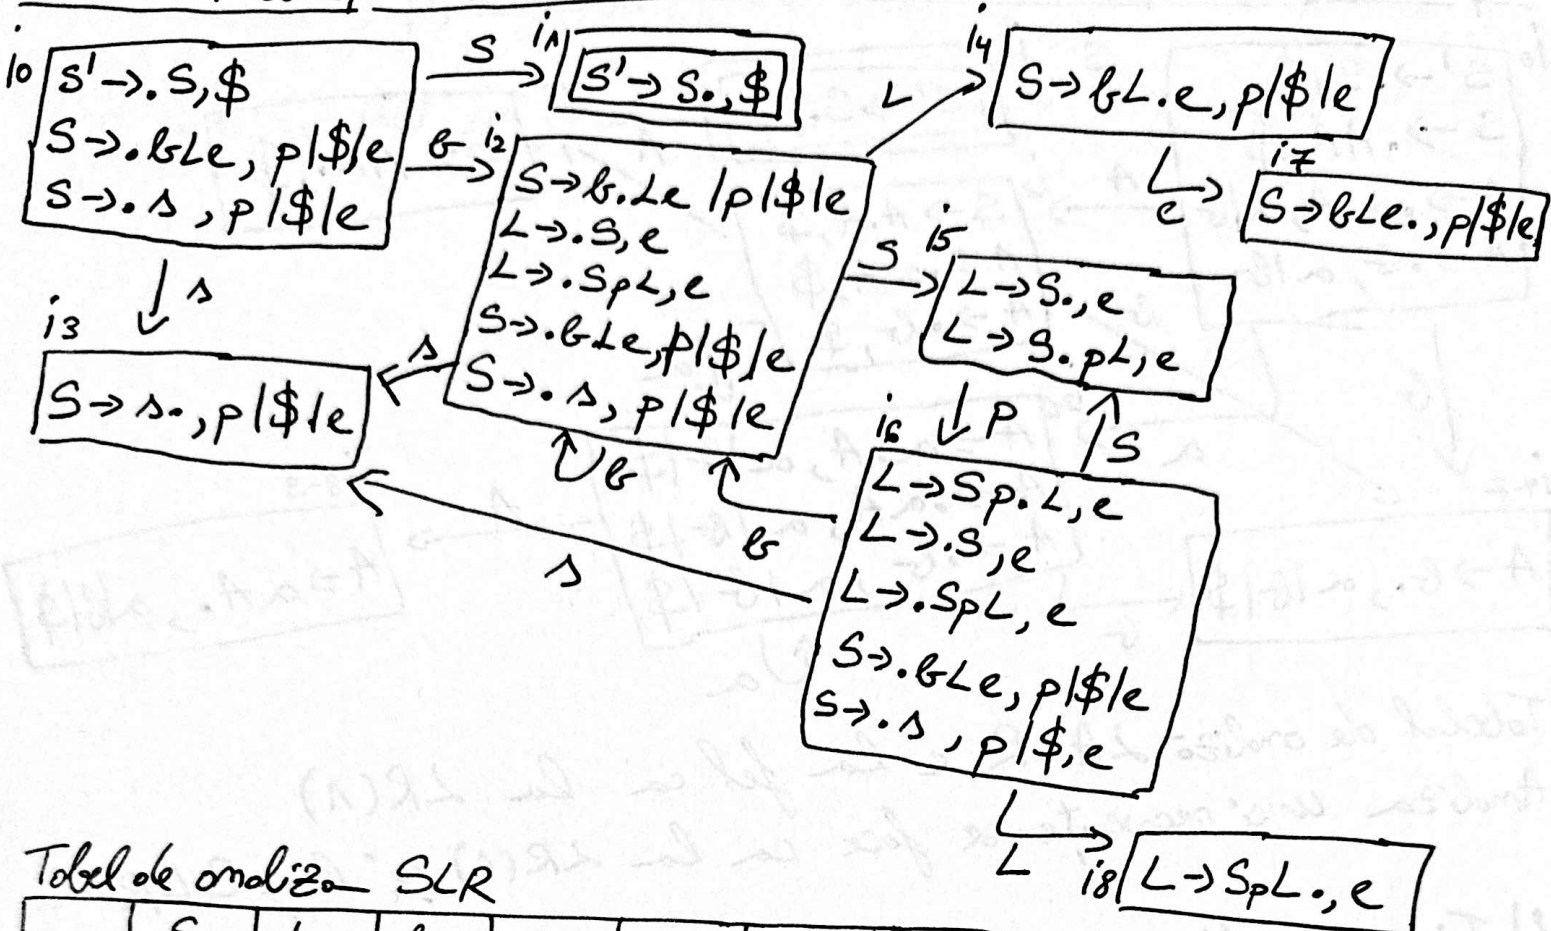 i0
S'→.S,$
S→.bLe, p|$|e
S→.s, p|$|e
S
i1
S'→S.,$
b
i2
S→b.Le |p|$|e
L→.S,e
L→.SpL,e
S→.bLe,p|$|e
S→.s, p|$|e
L
i4
S→bL.e, p|$|e
e
i7
S→bLe., p|$|e
S
i5
L→S.,e
L→S.pL,e
s
i3
S→s., p|$|e
s
b
p
S
i6
L→Sp.L,e
L→.S,e
L→.SpL,e
S→.bLe, p|$|e
S→.s, p|$,e
b
s
L
i8
L→SpL., e
Tabel de analiza SLR